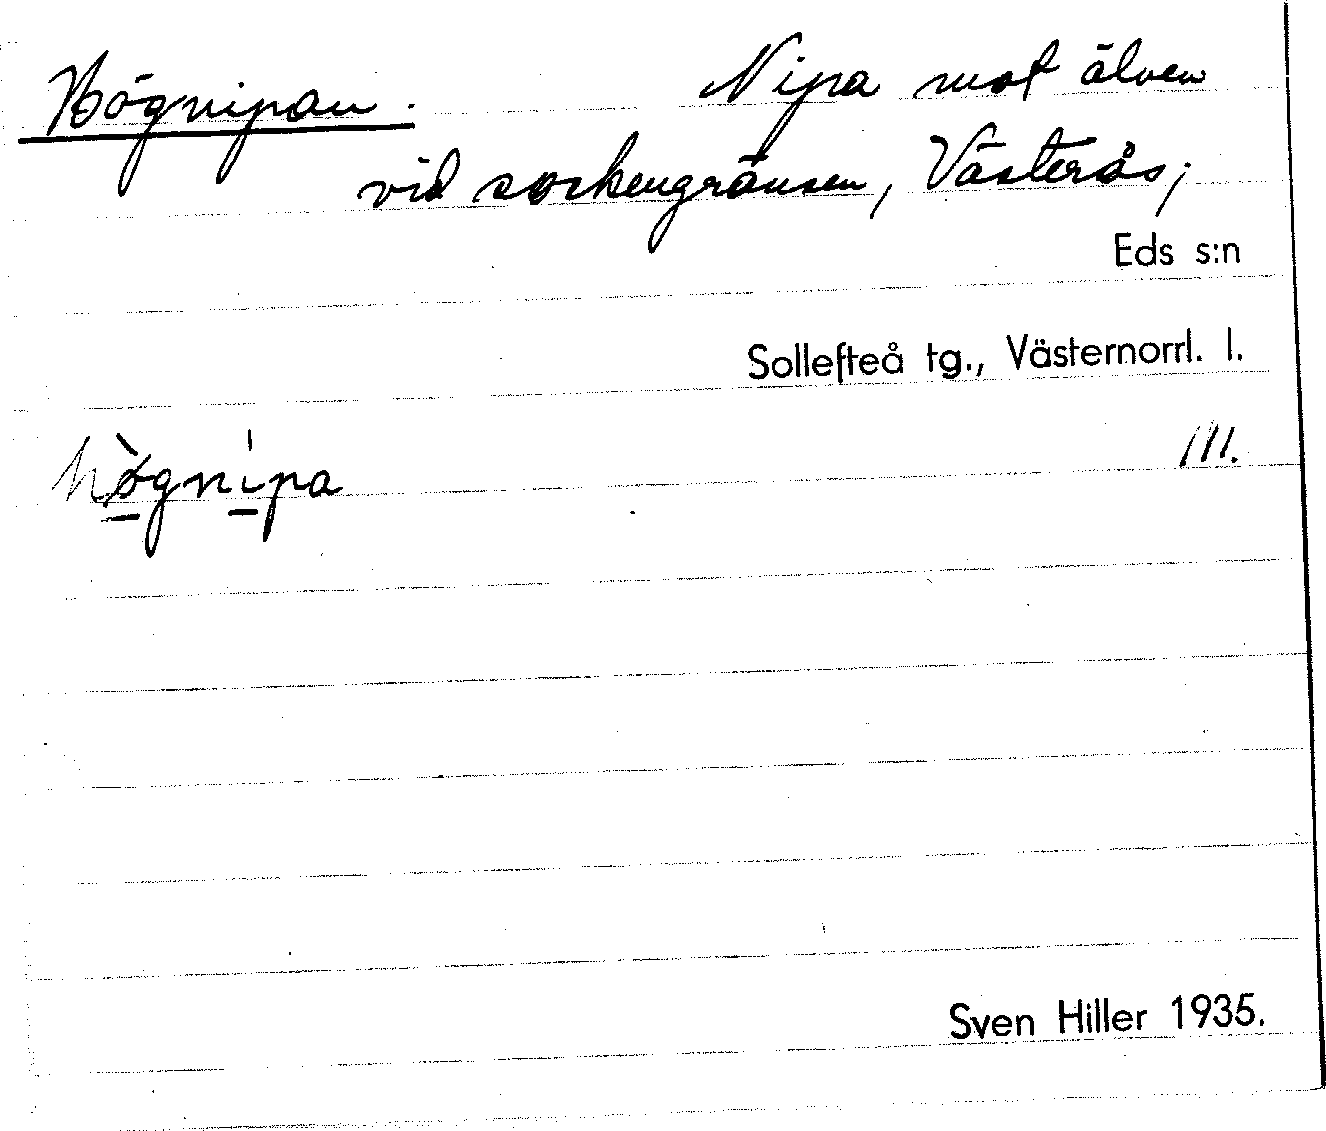 Högnipan. Nipa mot älven
vid sockengränsen, Västerås;
Eds s:n
Sollefteå tg., Västernorrl. l.
hø̀gnìpa 111.
Sven Hiller 1935.